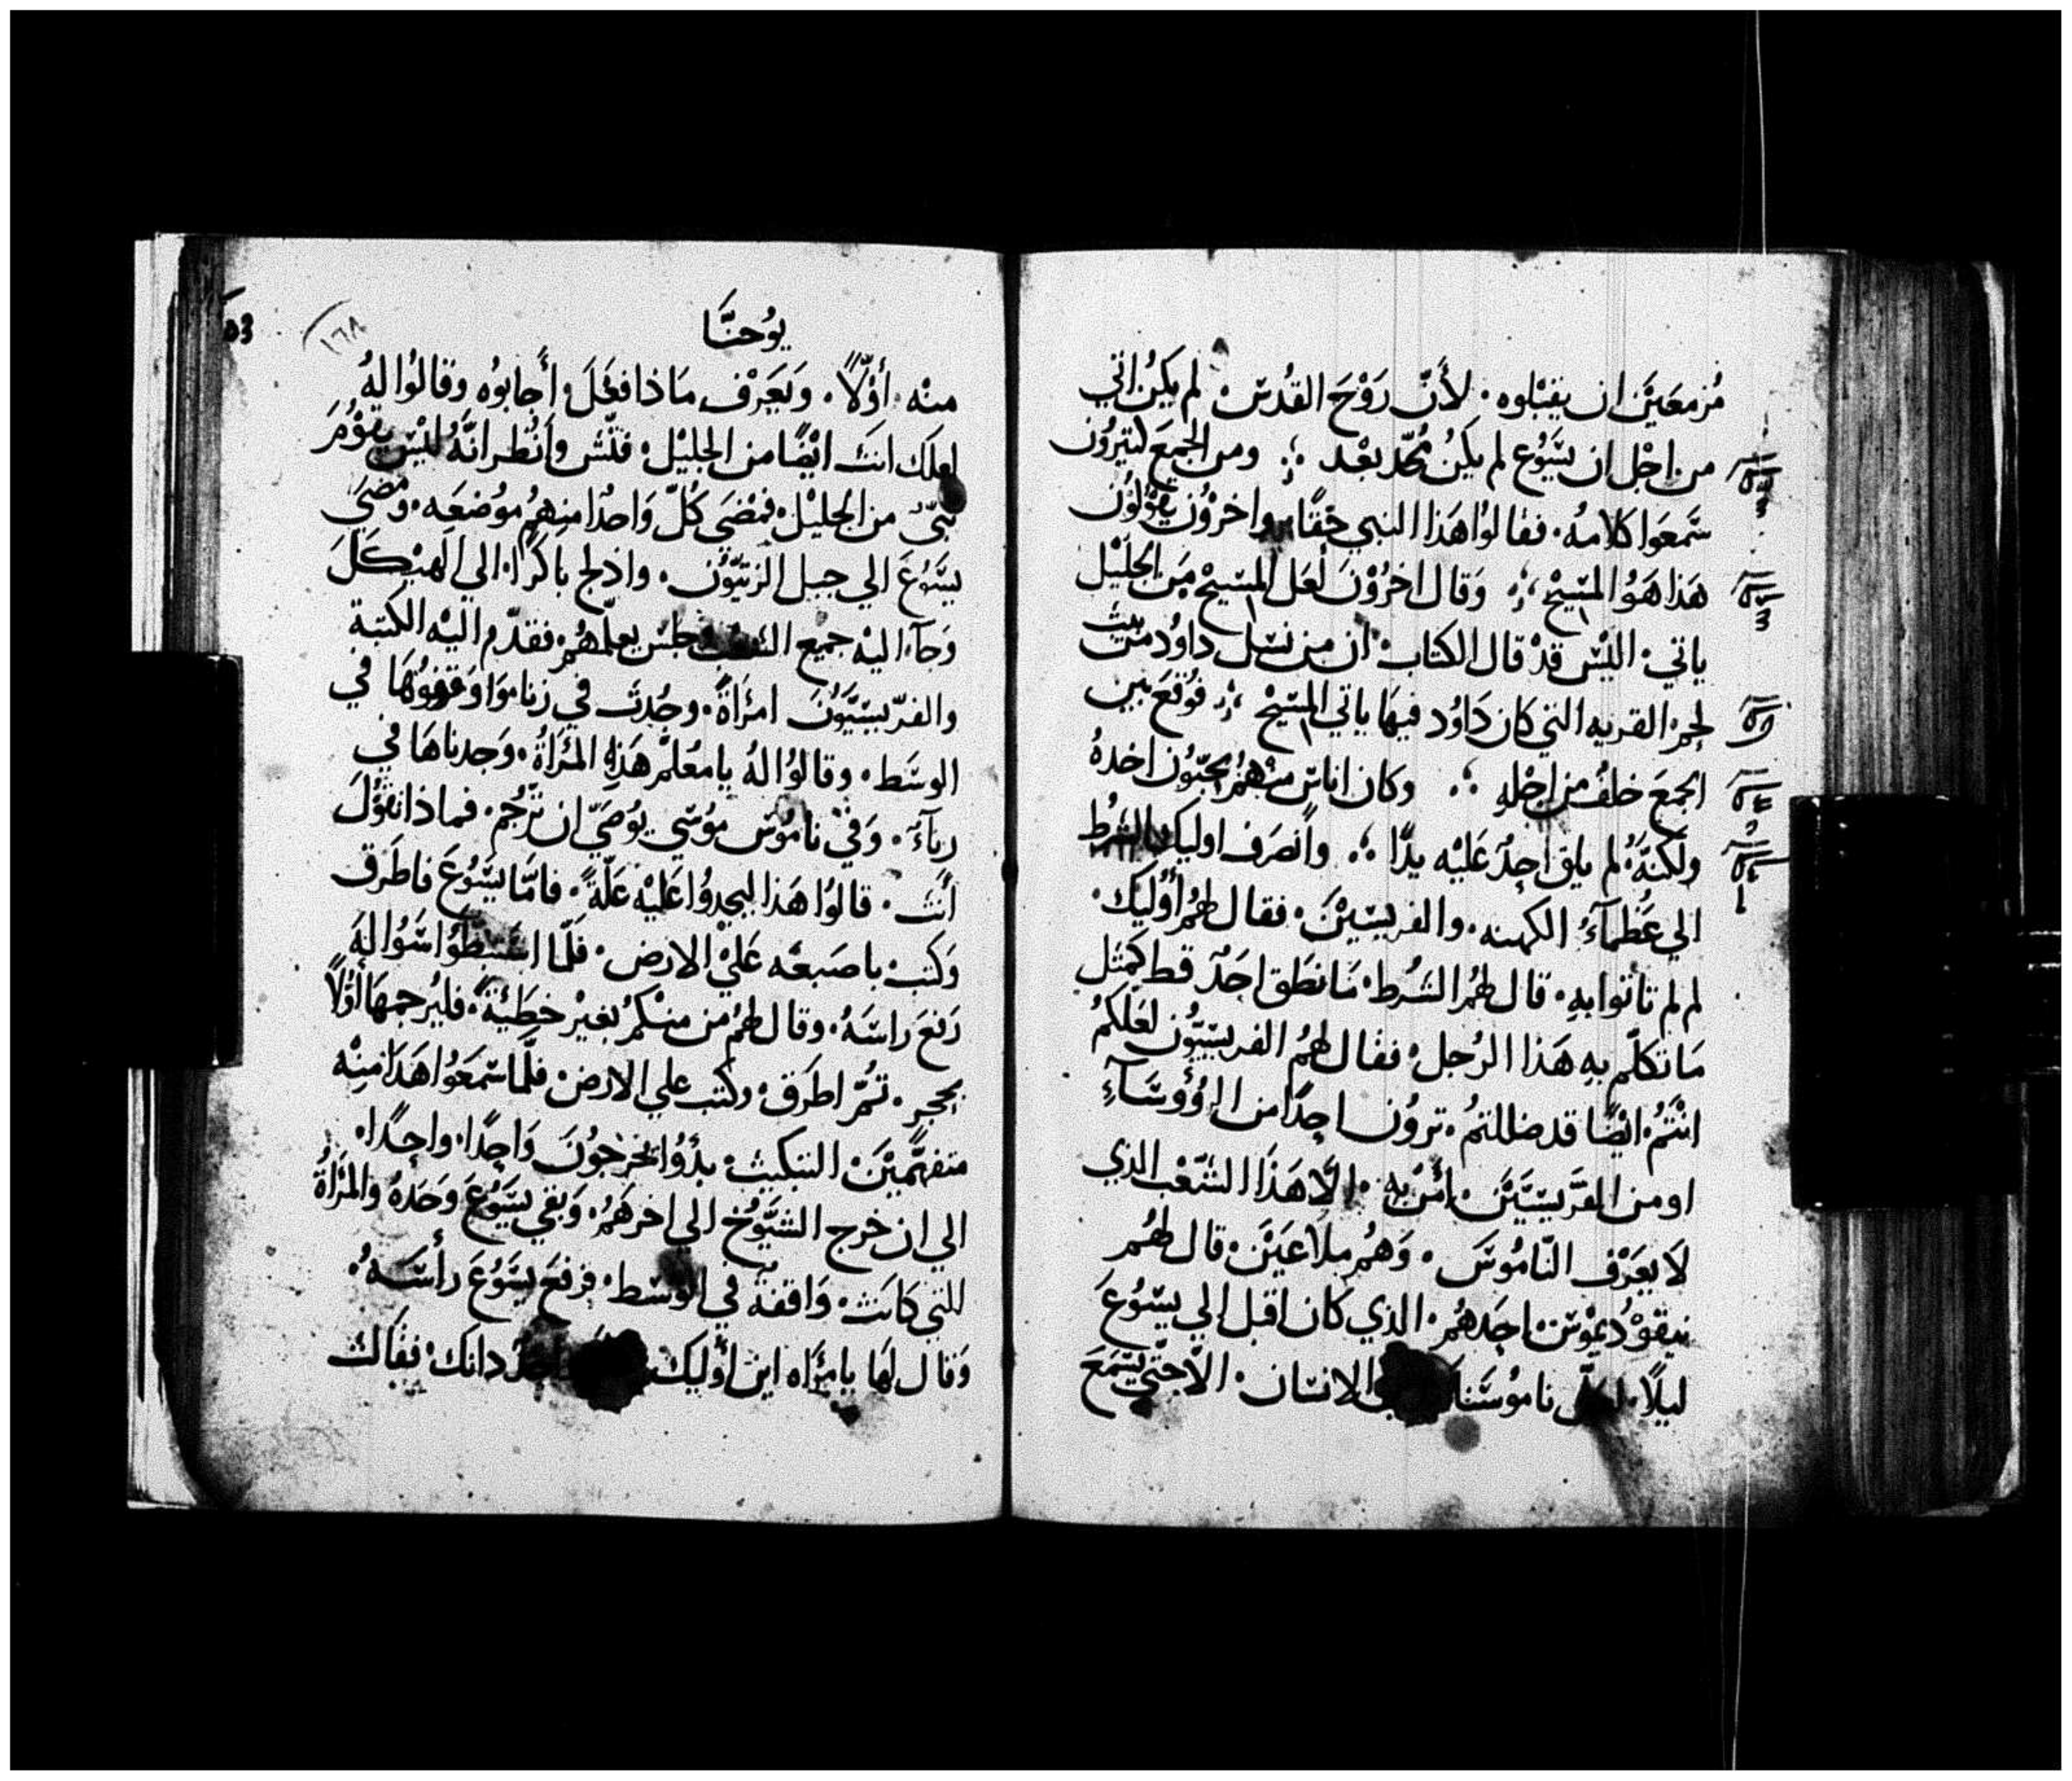 مُزمعَيَن ان يقبْلوه. لأَنّ رَوْحَ القُدسْ لم يكنْ اتي
من اجْل ان يسَّوُع لم يكَنُ مُجّد بعْد ؛ ومن الجميَع كتيَروُن
سَّمعَوا كلامهُ. فقالوُا هَذا النبي حَقًا واخروُن يقوْلوُن
هَذا هَوُ المسّيحْ ؛ وَقال اخرُوْنَ لَعَل المسّيحْ مَن الجَليْل
ياتي. اليْس قدْ قال الكتابْ ان من نسَل داوُد من بيت
لحمْ القريه التي كان دَاوُد فيهَا ياتي المسّيحْ ؛ فوُقعَ بين
الجمعَ خلفُ من اجْلهِ ؛ وكان اناسّ منهْمُ يحَبّوُن اخدهُ
ولكنّهُ لم يلق احِدٌ عَليْه يدًا ؛ وأنصَرف اوليك الشرُط
الي عَظمآءُ الكهنه. والفريسّييْنَ. فقال لهمُ أُوُليَك.
لم لم تاتوا بهِ. قال لهمُ الشرُط. مَا نطَق احَدٌ قط كمتل
مَا تكلّم بهِ هَذا الرُجل. فقال لهمُ الفريسّيّوُن لعَلكمُ
انْتمُ. ايْضًا قد ضللتمُ. تروُن احِدًا من الروُوسَآءِ
او من الفرَّيسّييَّن. امَن بهِ. الَّا هَذا الشّعْب الذي
لَا يعَرْف النّاموُسَ. وَهُم ملاعَيَن. قال لهُم
نيقوْدُيموْس احِدهُم. الذي كان اقبل الي يسّوُعَ
ليلًا. ناموُسَنا الانسان. الّا حتّي يسّمَعَ
يوُحنَّا
١٦٨
منْه. أوّلًا. وَيعَرْف مَاذا فعَلَ. أَجابوُه وقالوُا لهُ
لعلكَ انتَ ايْضًا من الجليْل. فتّش وأنْظر انّهُ ليْس يقوْمُ
نبّيٌ من الجليْل. فمَضيَ كُلّ وَاحدٌا منهمُ موُضعَه. وَمضيَ
يسَّوُعَ الي جبل الزيتّوُن. وادلج باكرًا. الي الهيْكلَ
وَجآء اليْه جميع الشعَب جلسَ يعلّمهُم. فقدّم اليْه الكَتبَة
والفرّيسيّوَنَ امرَأةً. وجُدتَ في زنا مَوا وَقفوُهَا في
الوسَط. وقالوُا لهُ يا مُعَلمْ هَذِهِ المرَاةُ. وَجدناهَا في
زنآءَ. وَفيْ ناموُس موُسّي يوُصَيّ ان ترُّجمْ. فماذا تقوُلَ
أَنتَ. قالوُا هَذا ليجدوُا عَليْه عَلّةً. فامّا يسّوُعَ فاطَرق
وَكتبَ باصَبعُه عَليْ الارض. فلّما استبَطوُا سّوُالهَ
رَفعَ راسَهُ. وقال لهمُ من منْكمُ بغيْر خطَيئهً. فليُرجمهَا أوّلًا
بحجرٍ. تمُّ اطرَق. وكتب علي الارضْ فلّما سّمَعَوُا هَذا منهْ
متفهّميَن التبكيت. بدَؤُا يخرجوُنَ وَاحِدًا. واحِدًا.
الي ان خرج الشيّوُخ الي اخرهُم. وَبقي يسَّوُعَ وَحَدهُ والمرَأةُ
للتي كانتَ. وَاقفهً في الوْسَط. فرفعَ يسَّوُعَ رأسَهُ.
وَقال لهَا يا مرَاه اين أوُليك احَدٌ دانك. فقالت